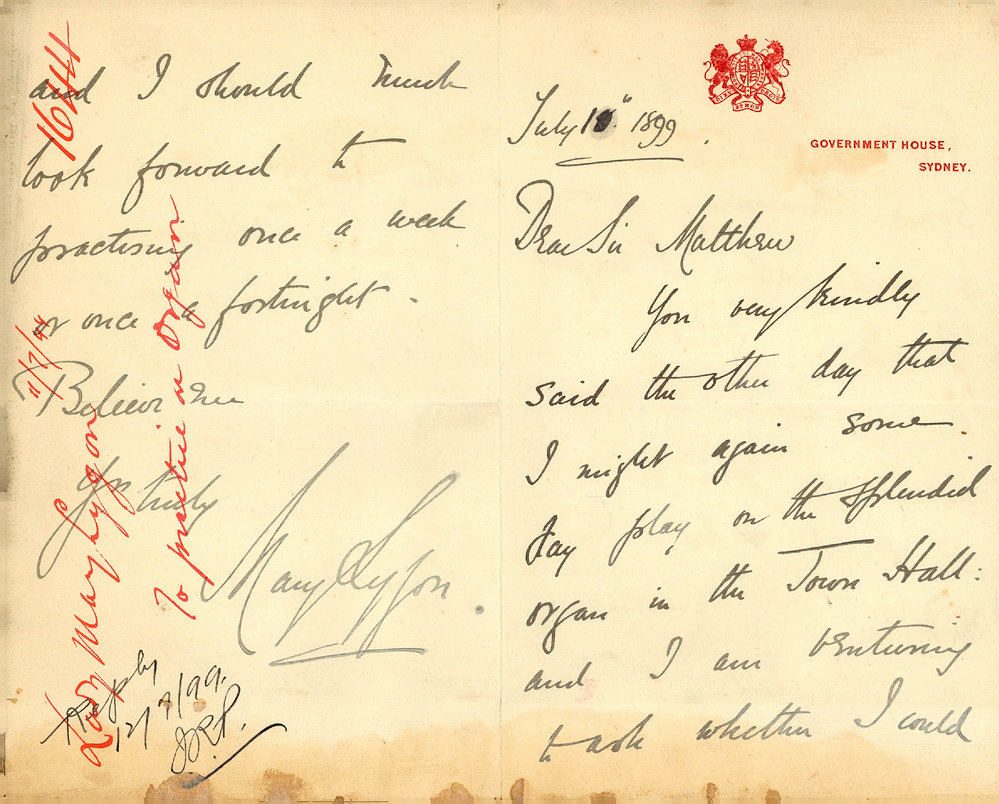 DIEU ET MON DROIT
GOVERNMENT HOUSE,
SYDNEY.
July 1899.
Dear Sir Matthew
You very kindly
said the other day that
I might again some
day play on the splendid
organ in the Town Hall:
and I am venturing
to ask whether I could
and I should much
look forward to
practising once a week
or once a fortnight.
Believe me
Yrs truly
Mary Lygon.
1644
11/7/99
Lady Mary Lygon
To practice on Organ
Reply
12/7/99.